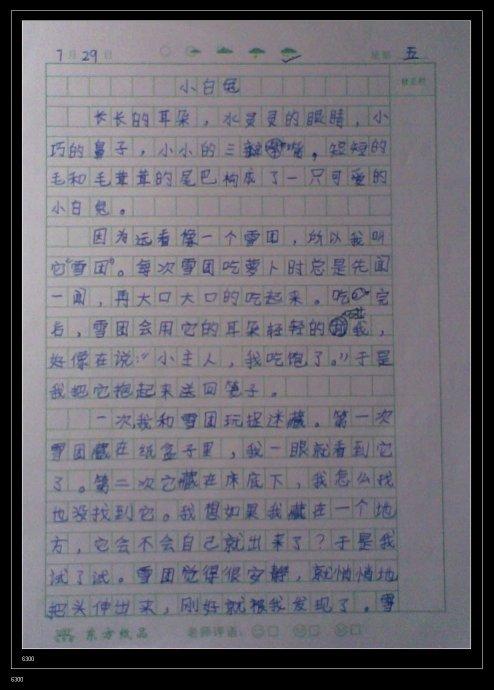 7月29日 星期五
小白兔
长长的耳朵，水灵灵的眼睛，小
巧的鼻子，小小的三瓣嘴。短短的
毛和毛茸茸的尾巴构成了一只可爱的
小白兔。
因为远看像一个雪团，所以我叫
它“雪团”。每次雪团吃萝卜时总是先闻
一闻，再大口大口的吃起来。吃完
后，雪团会用它的耳朵轻轻的我，
好像在说：“小主人，我吃饱了。”于是
我把它抱起来送回笼子。
一次我和雪团玩捉迷藏。第一次
雪团藏在纸盒子里，我一眼就看到它
了。第二次它藏在床底下，我怎么找
也没找到它。我想如果我藏在一个地
方，它会不会自己就出来了？于是我
试了试。雪团觉得很安静，就悄悄地
把头伸出来，刚好就被我发现了。雪
东方纸品 老师评语：
6300
6300